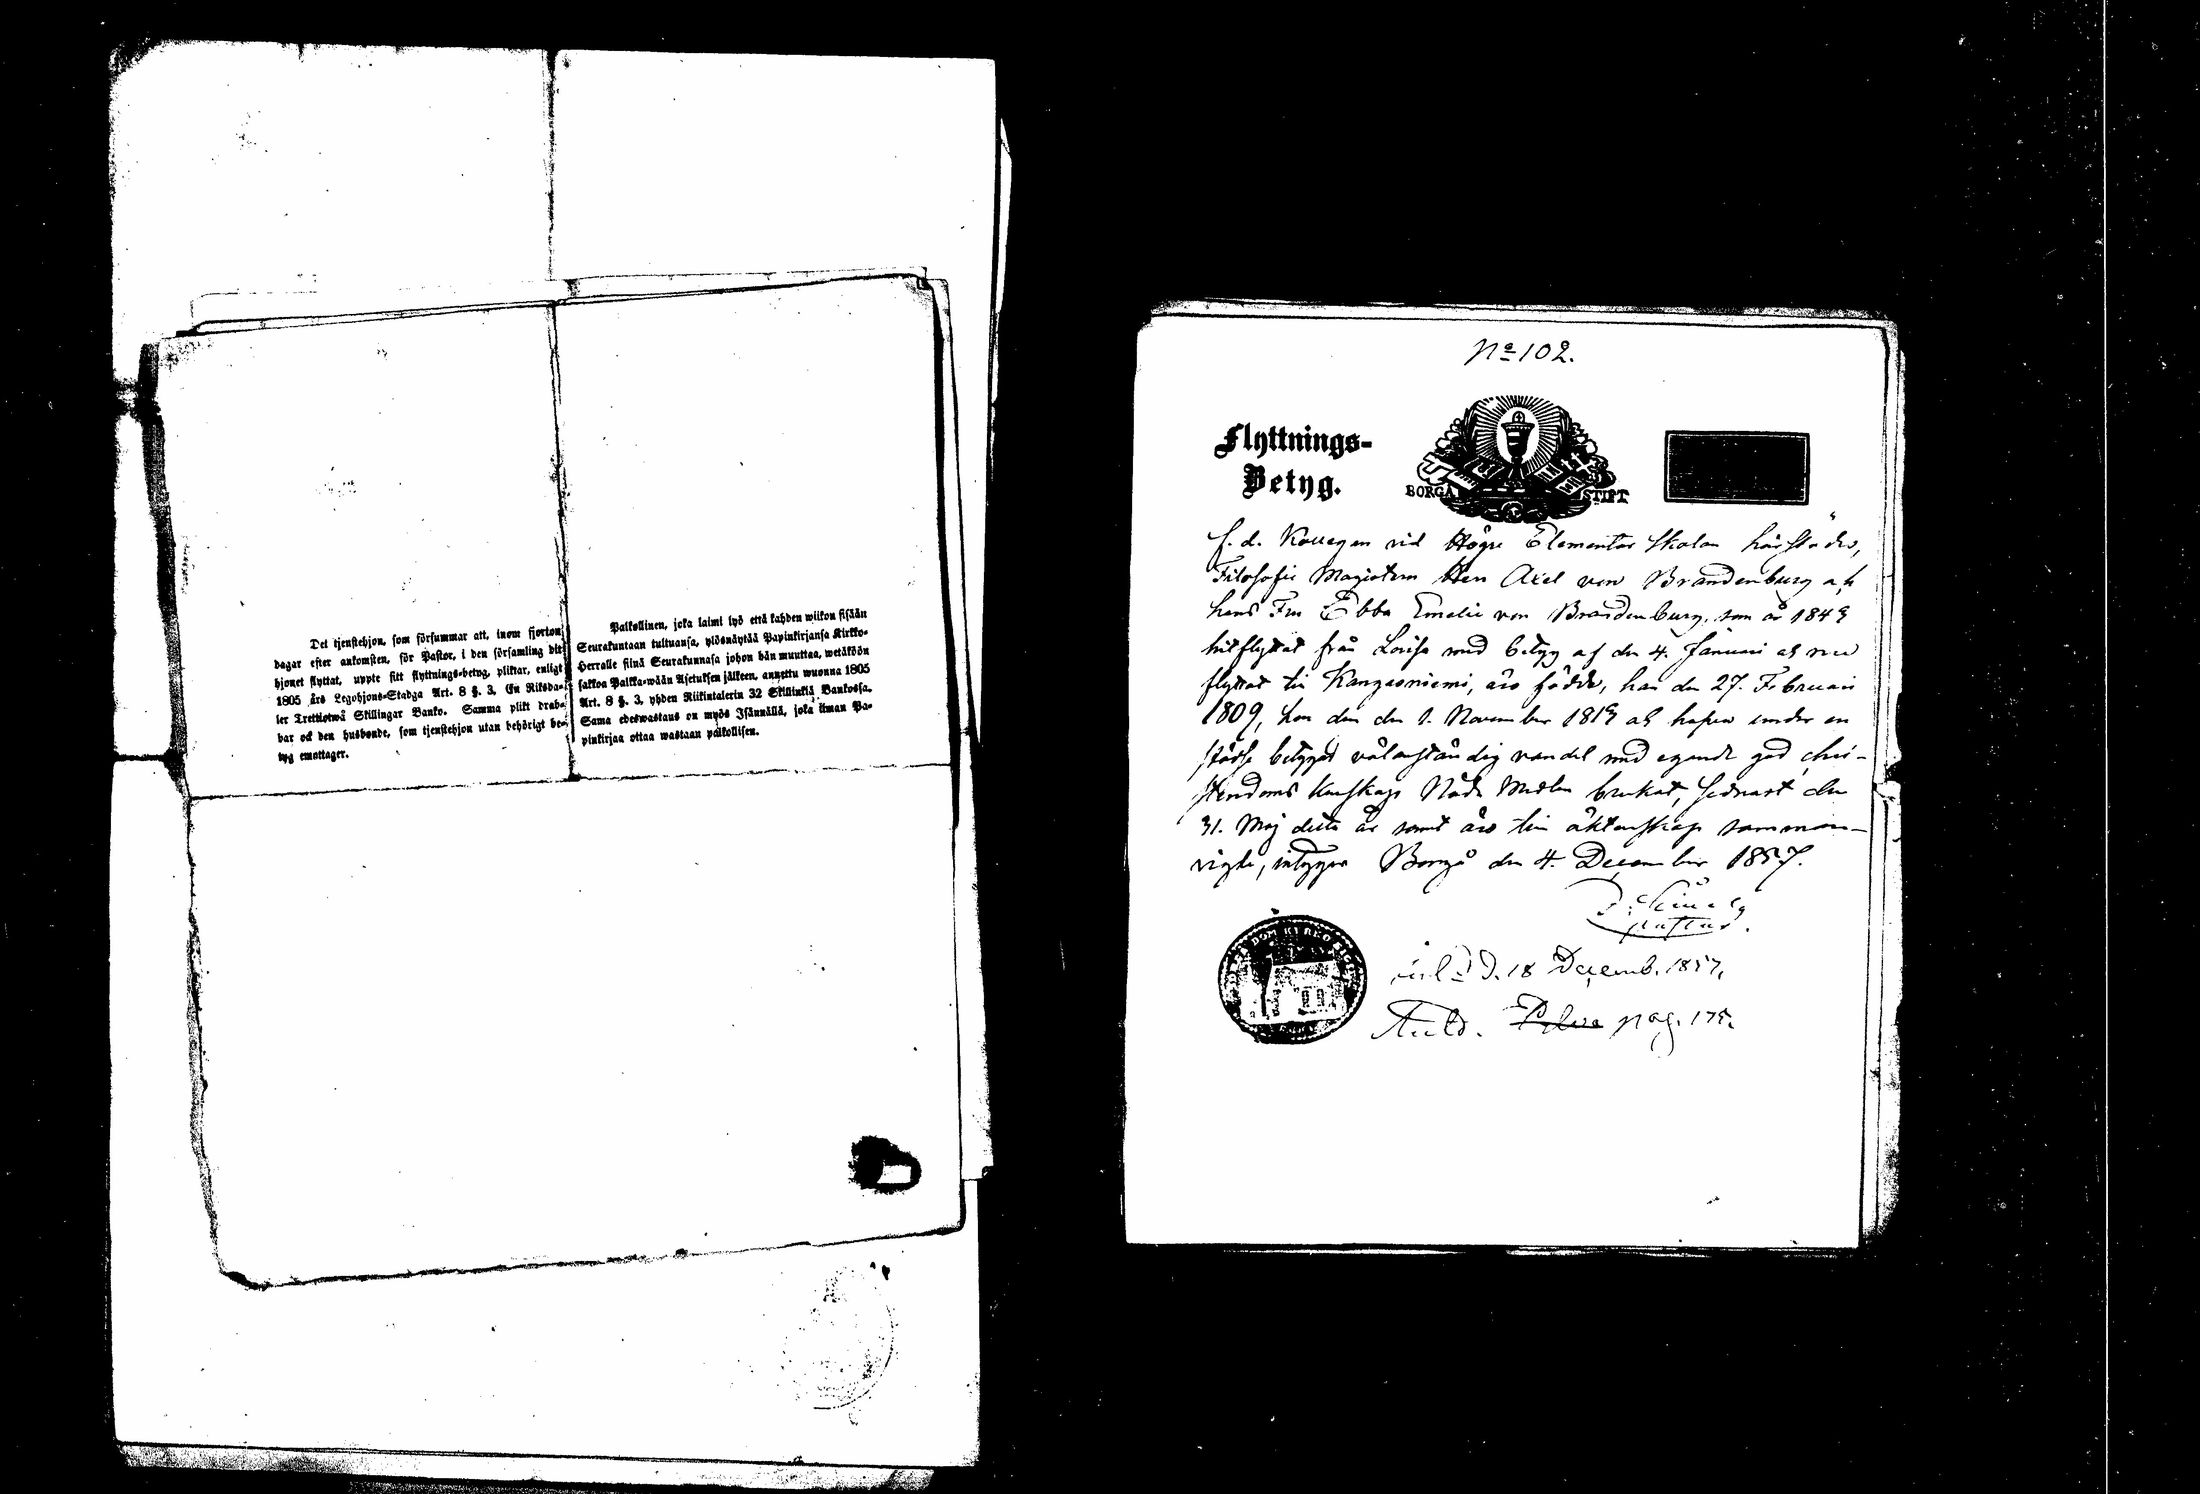 Det tjenstehjon, som försummar att, inom fjorton
dagar efter ankomsten, för Pastor, i den församling dit
hjonet flyttat, uppte sitt flyttnings-betyg, pliktar, enligt
1805 års Legohjons-Stadga Art. 8 §. 3, En Riksda-
ler Trettiotwå Skillingar Banko. Samma plikt drab-
bar ock den husbonde, som tjenstehjon utan behörigt be-
tyg emottager.
Palkollinen, joka laimi lyö että kahden wiikon sisään
Seurakuntaan tultuansa, ylösnäytää Papinkirjansa Kirkko-
Herralle siinä Seurakunnasa johon hän muuttaa, wetäköön
sakkoa Palkka-wään Asetuksen jälkeen, annettu wuonna 1805
Art. 8 §. 3, yhden Riikintalerin 32 Skillinkiä Bankossa.
Sama edeswastaus on myös Isännällä, joka ilman Pa-
pinkirjaa ottaa wastaan palkollisen.
No 102.
Flyttnings-
Betyg.
BORGÅ STIFT
f. d. Kollegan vid Högre Elementar Skolan härstädes,
Filosofie Magistern Herr Axel von Brandenburg och
hans Fru Ebba Emelie von Brandenburg, som år 1843
hitflyttat från Lovisa med betyg af den 4. Januari och nu
flyttat till Kangasniemi, äro födde, han den 27. Februari
1809, hon den 1. November 1813 och hafva under en
städse betygad välanständig vandel med egande god chri-
stendoms kunskap Nåde Medlen brukat, sednast den
31. Maj detta år samt äro till äktenskap samman-
vigde, intygar Borgå den 4. December 1857.
D. 18 Decemb. 1857.
pag. 175.
DOM KYRKO